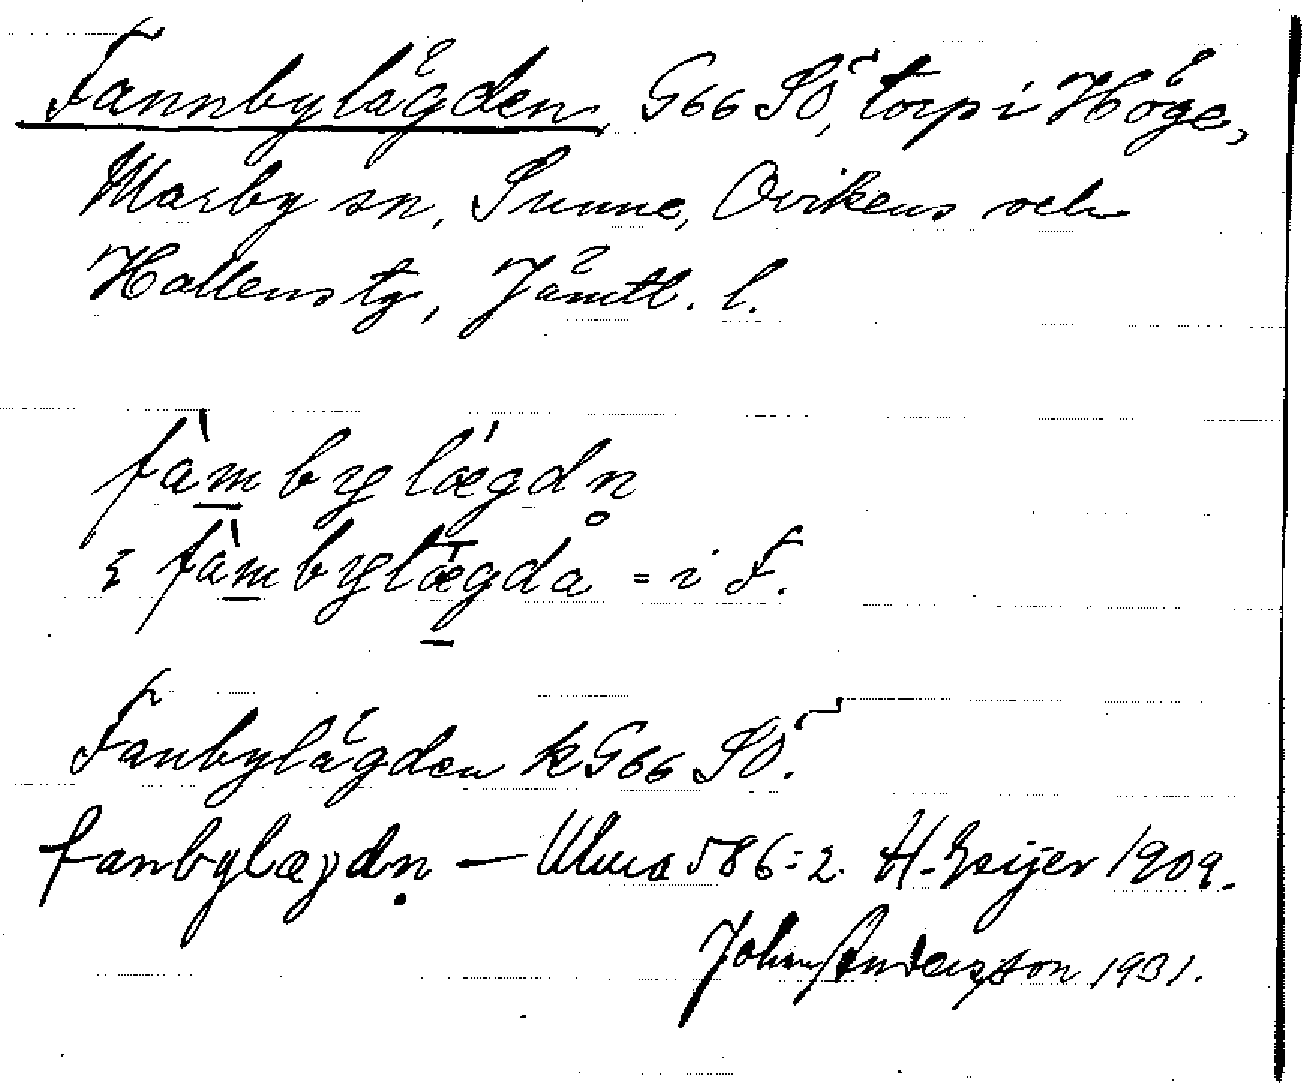 Fannbylägden, G66 SÖ, torp i Höge,
Marby sn, Sunne, Ovikens och
Hallens tg, Jämtl. l.
fàm̲bylǽgdn̥
ɩ fàm̲bylæ̲gda = i F.
Fanbylägden k G66 SÖ.
fanbylæɡdṇ — Ulma 586:2. H. Geijer 1909.
John Andersson 1931.